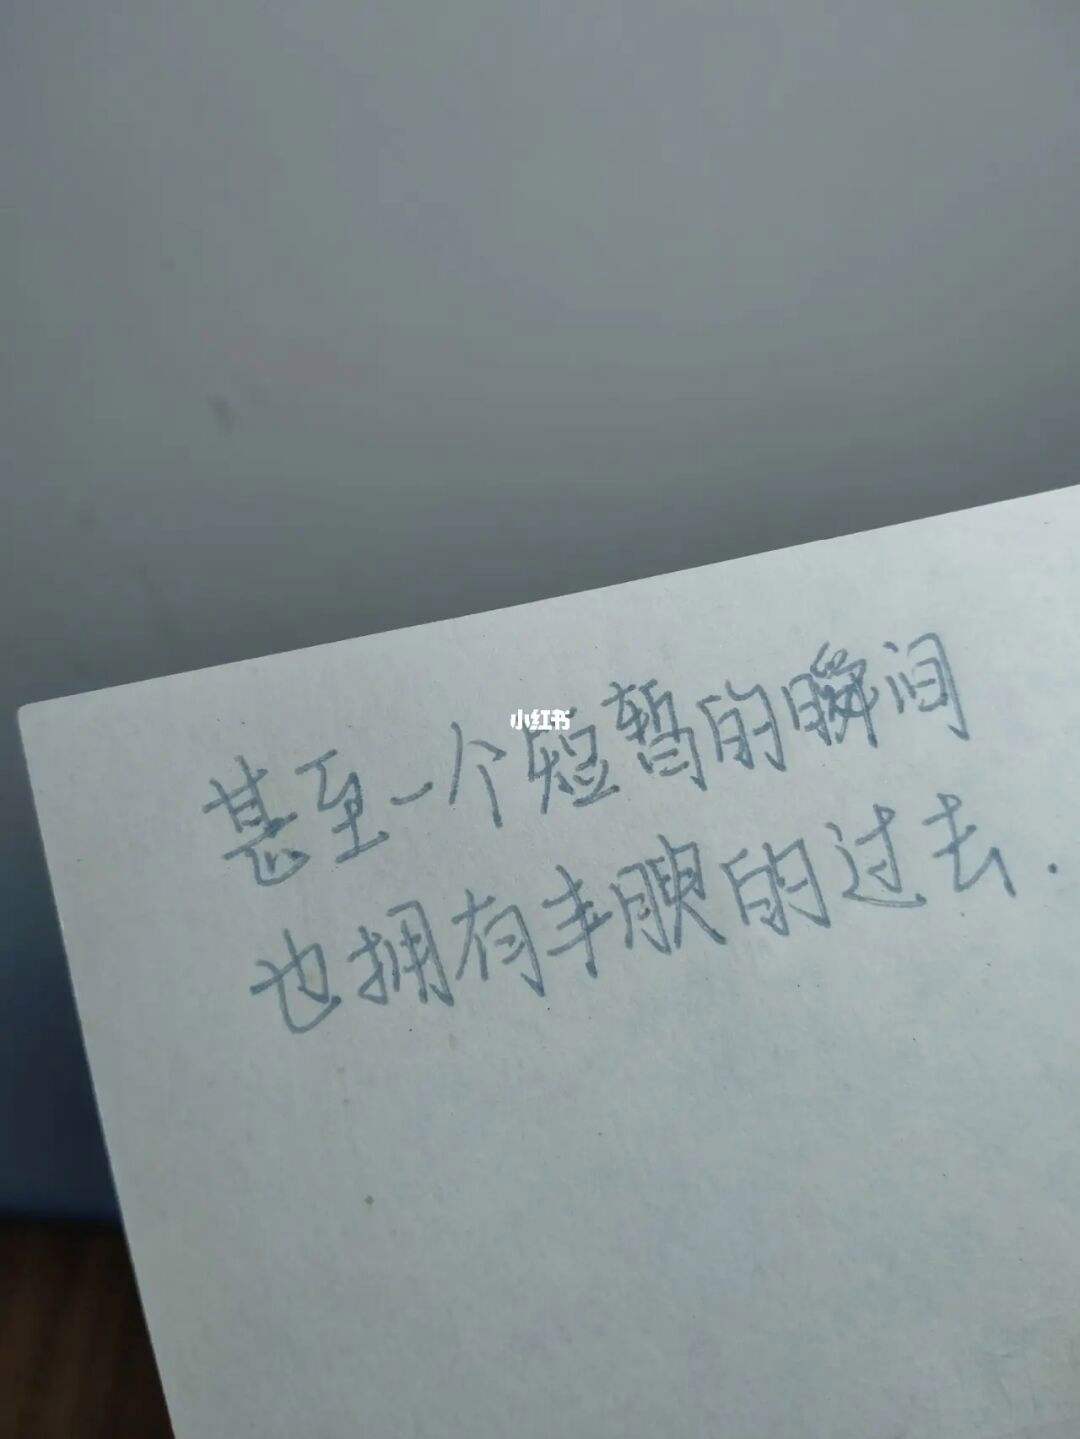 小红书
甚至一个短暂的瞬间
也拥有丰腴的过去.